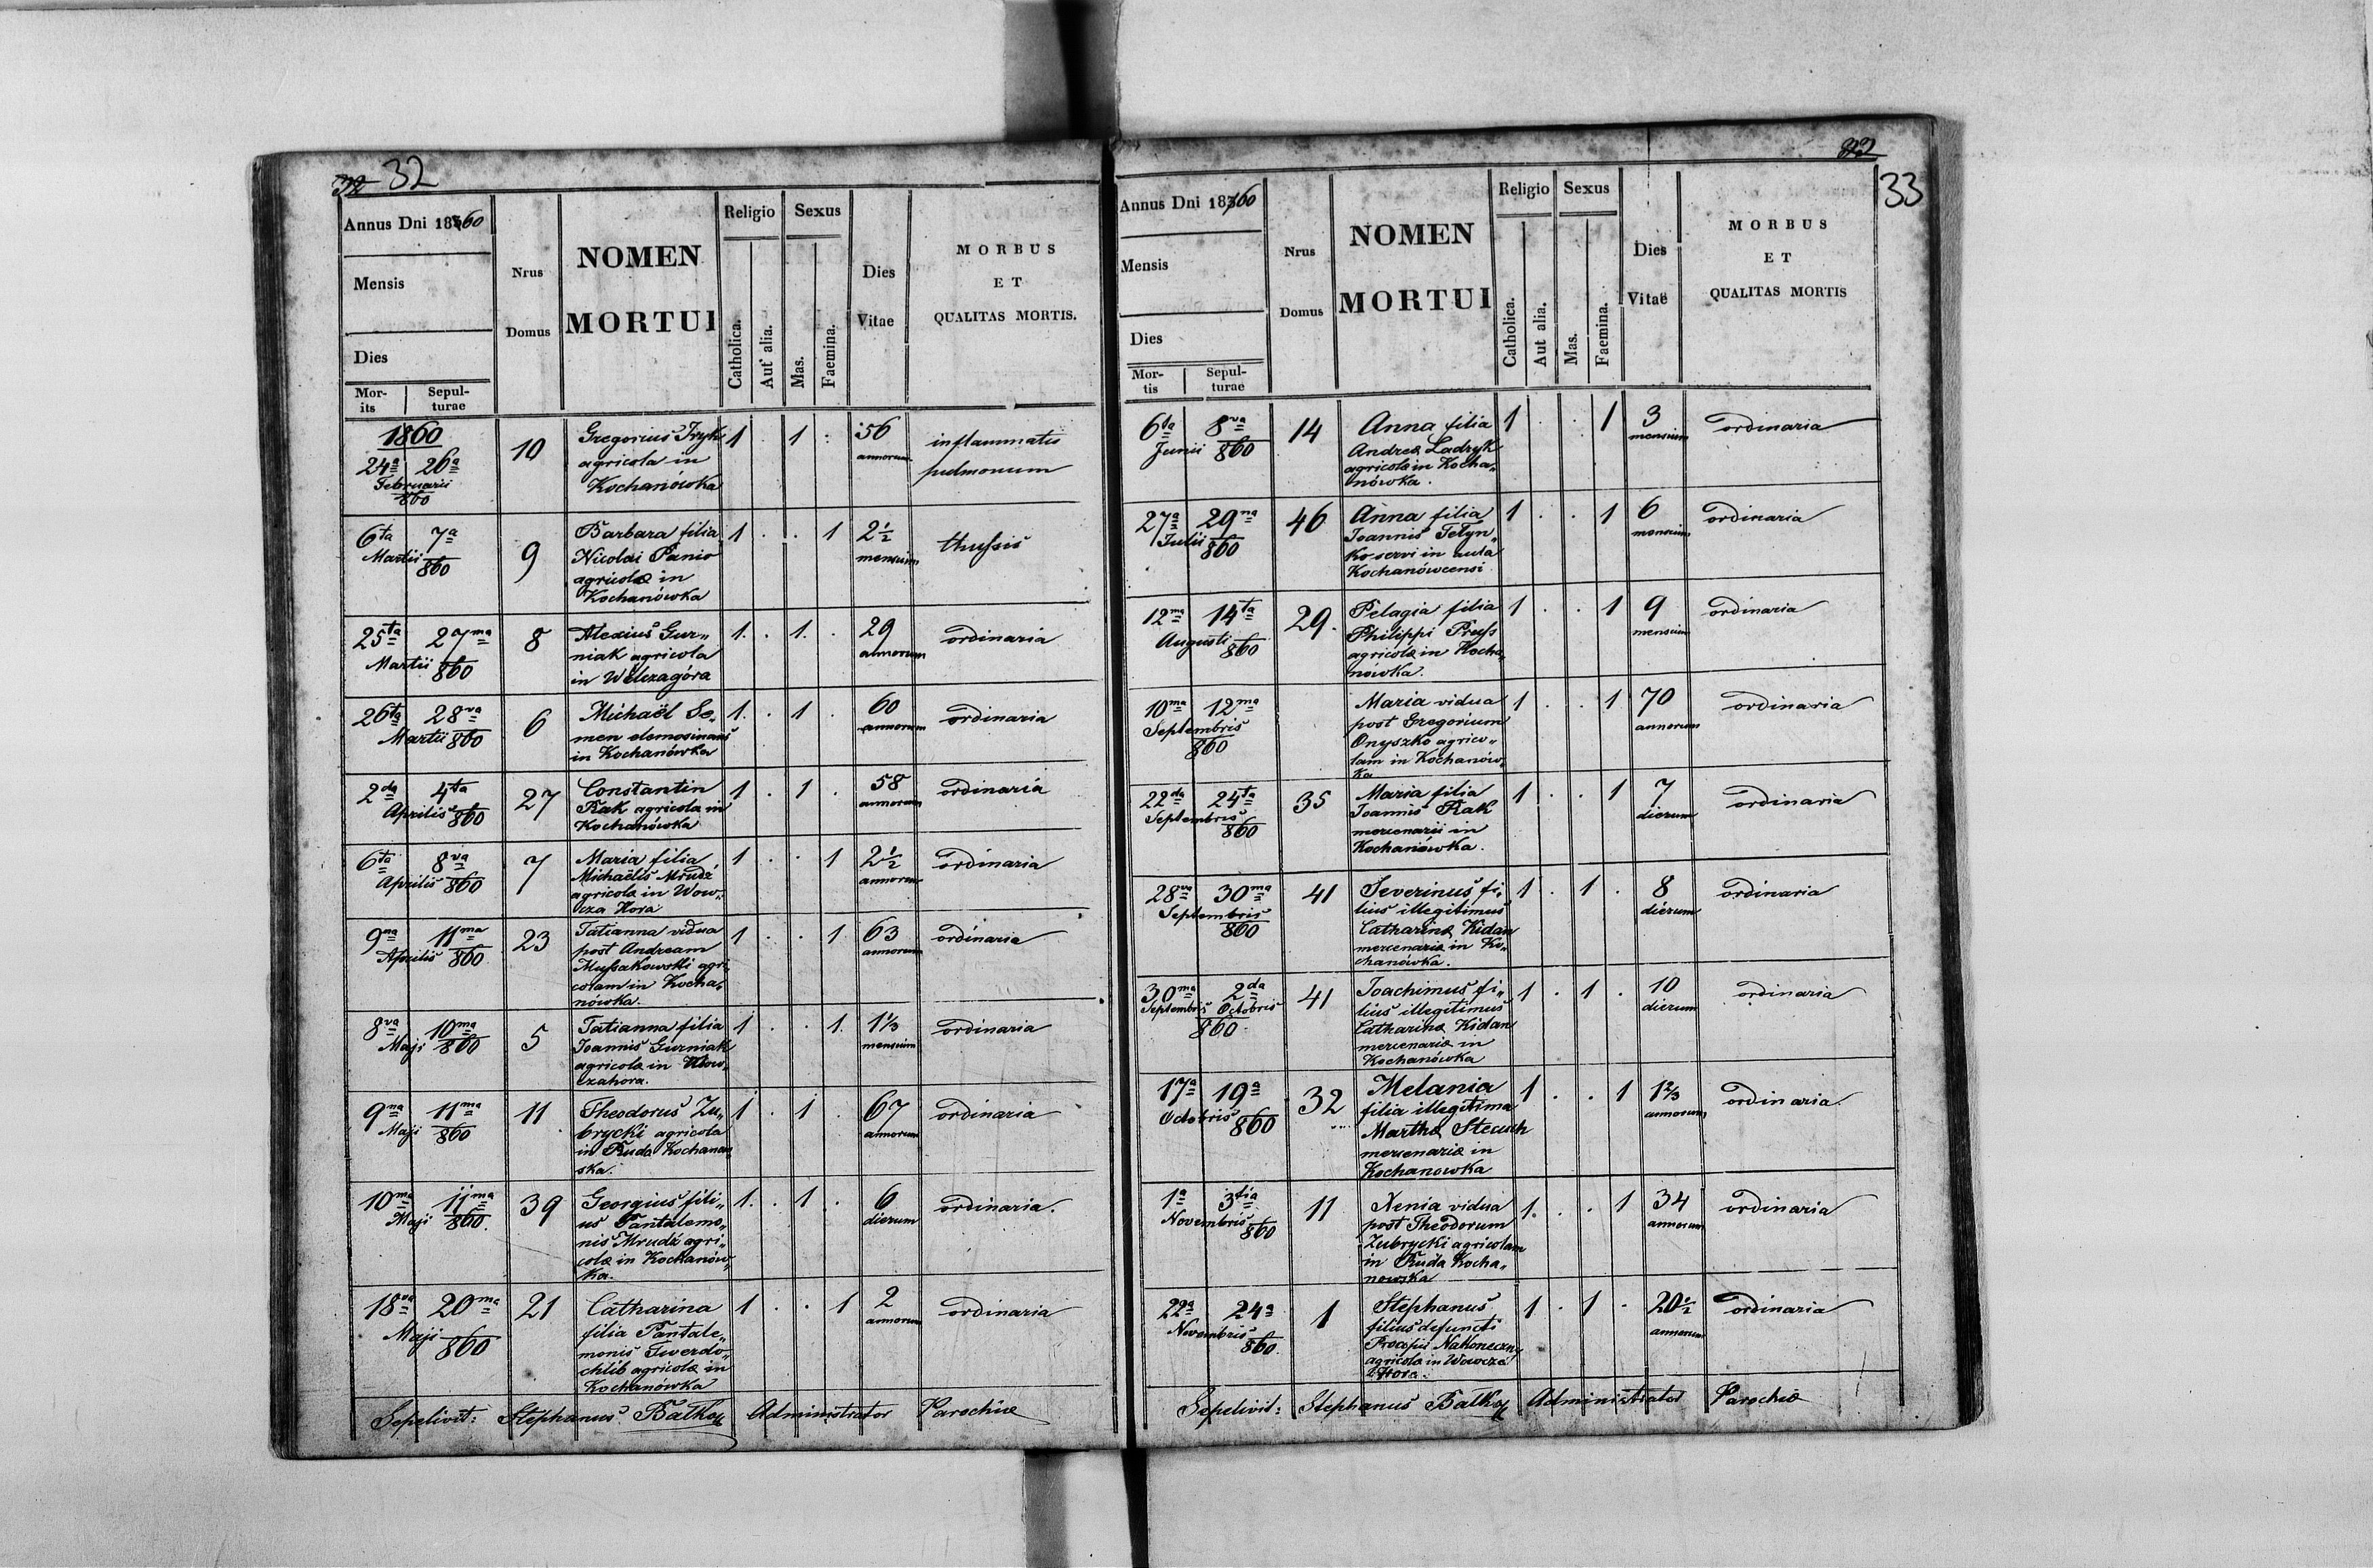 32 32
Annus Dni 1860
Mensis
Dies
Mor-
its
Sepul-
turae
Nrus
Domus
NOMEN
MORTUI
Religio
Catholica.
Aut alia.
Sexus
Mas.
Faemina.
Dies
Vitae
MORBUS
ET
QUALITAS MORTIS.
1860
24a 26a
Februarii
860
10
Gregorius Fryk
agricola in
Kochanówka
1 . 1 .
56
annorum
inflammatio
pulmonum
6ta 7a
Martii 860
9
Barbara filia
Nicolai Panio
agricolæ in
Kochanówka
1 . . 1
2 1/2
mensium
thussis
25ta 27ma
Martii 860
8
Alexius Gur„
niak agricola
in Wilczagóra
1. . 1. .
29
annorum
ordinaria
26ta 28va
Martii 860
6
Michaël Se„
men elemosinans
in Kochanówka
1. . 1 .
60
annorum
ordinaria
2da 4ta
Aprilis 860
27
Constantin
Rak agricola in
Kochanówka
1 . 1 .
58
annorum
ordinaria
6ta 8va
Aprilis 860
7
Maria filia
Michaëlis Mrudź
agricolæ in Wow„
cza Hora
1 . . 1
2 1/2
annorum
ordinaria
9na 11ma
Aprilis 860
23
Tatianna vidua
post Andream
Mussakowski agri„
colam in Kocha„
nówka.
1 . . 1
63
annorum
ordinaria
8va 10ma
Maji 860
5
Tatianna filia
Joannis Gurniak
agricolæ in Wow„
czahora.
1 . . 1.
1 1/3
mensium
ordinaria
9na 11ma
Maji 860
11
Theodorus Zu„
brycki agricola
in Ruda Kochanow„
ska.
1 . 1 .
67
annorum
ordinaria
10ma 11ma
Maji 860.
39
Georgius fili„
us Pantalemo„
nis Mrudź agri„
colæ in Kochanów„
ka.
1. . 1 .
6
dierum
ordinaria.
18va 20ma
Maji 860
21
Catharina
filia Pantale„
monis Twerdo„
chlib agricolæ in
Kochanówka
1 . . 1
2
annorum
ordinaria
Sepelivit: Stephanus Batko Administrator Parochiæ
33
Annus Dni 1860
Mensis
Dies
Mor-
tis
Sepul-
turae
Nrus
Domus
NOMEN
MORTUI
Religio
Catholica.
Aut alia.
Sexus
Mas.
Faemina.
Dies
Vitaë
MORBUS
ET
QUALITAS MORTIS
6ta 8va
Junii 860
14
Anna filia
Andreæ Ladzyk
agricolæ in Kocha„
nówka.
1 . . 1
3
mensium
ordinaria
27a 29na
Julii 860
46
Anna filia
Joannis Tetyn„
ko servi in aula
Kochanówcensi
1 . . 1
6
mensium
ordinaria
12ma 14ta
Augusti 860
29.
Pelagia filia
Philippi Preys
agricolæ in Kocha„
nówka.
1 . . 1
9
mensium
ordinaria
10ma 12ma
Septembris
860
Maria vidua
post Gregorium
Onyszko agrico„
lam in Kochanów„
ka
1 . . 1
70
annorum
ordinaria
22da 24ta
Septembris
860
35
Maria filia
Joannis Rak
mercenarii in
Kochanówka.
1 . . 1
7
dierum
ordinaria
28va 30ma
Septembris
860
41
Severinus fi„
lius illegitimus
Catharinæ Kidan
mercenariæ in Ko„
chanówka.
1 . 1 .
8
dierum
ordinaria
30ma 2da
Septembris Octobris
860.
41
Joachimus fi„
lius illegitimus
Catharinæ Kidan
mercenariæ in
Kochanówka
1 . 1 .
10
dierum
ordinaria
17a 19a
Octobris 860
32
Melania
filia illegitima
Marthæ Steush
mercenariæ in
Kochanowka
1 . . 1
1 2/3
annorum
ordinaria
1a 3tia
Novembris
860
11
Xenia vidua
post Theodorum
Zubrycki agricolam
in Ruda Kocha„
nowska
1. . . 1
34
annorum
ordinaria
22a 24a
Novembris
860.
1
Stephanus
filius defuncti
Procopii Nakoneczny
agricolæ in Wowcza
Hora.
1 . 1 .
20 1/2
annorum
ordinaria
Sepelivit: Stephanus Batko Administrator Parochiæ